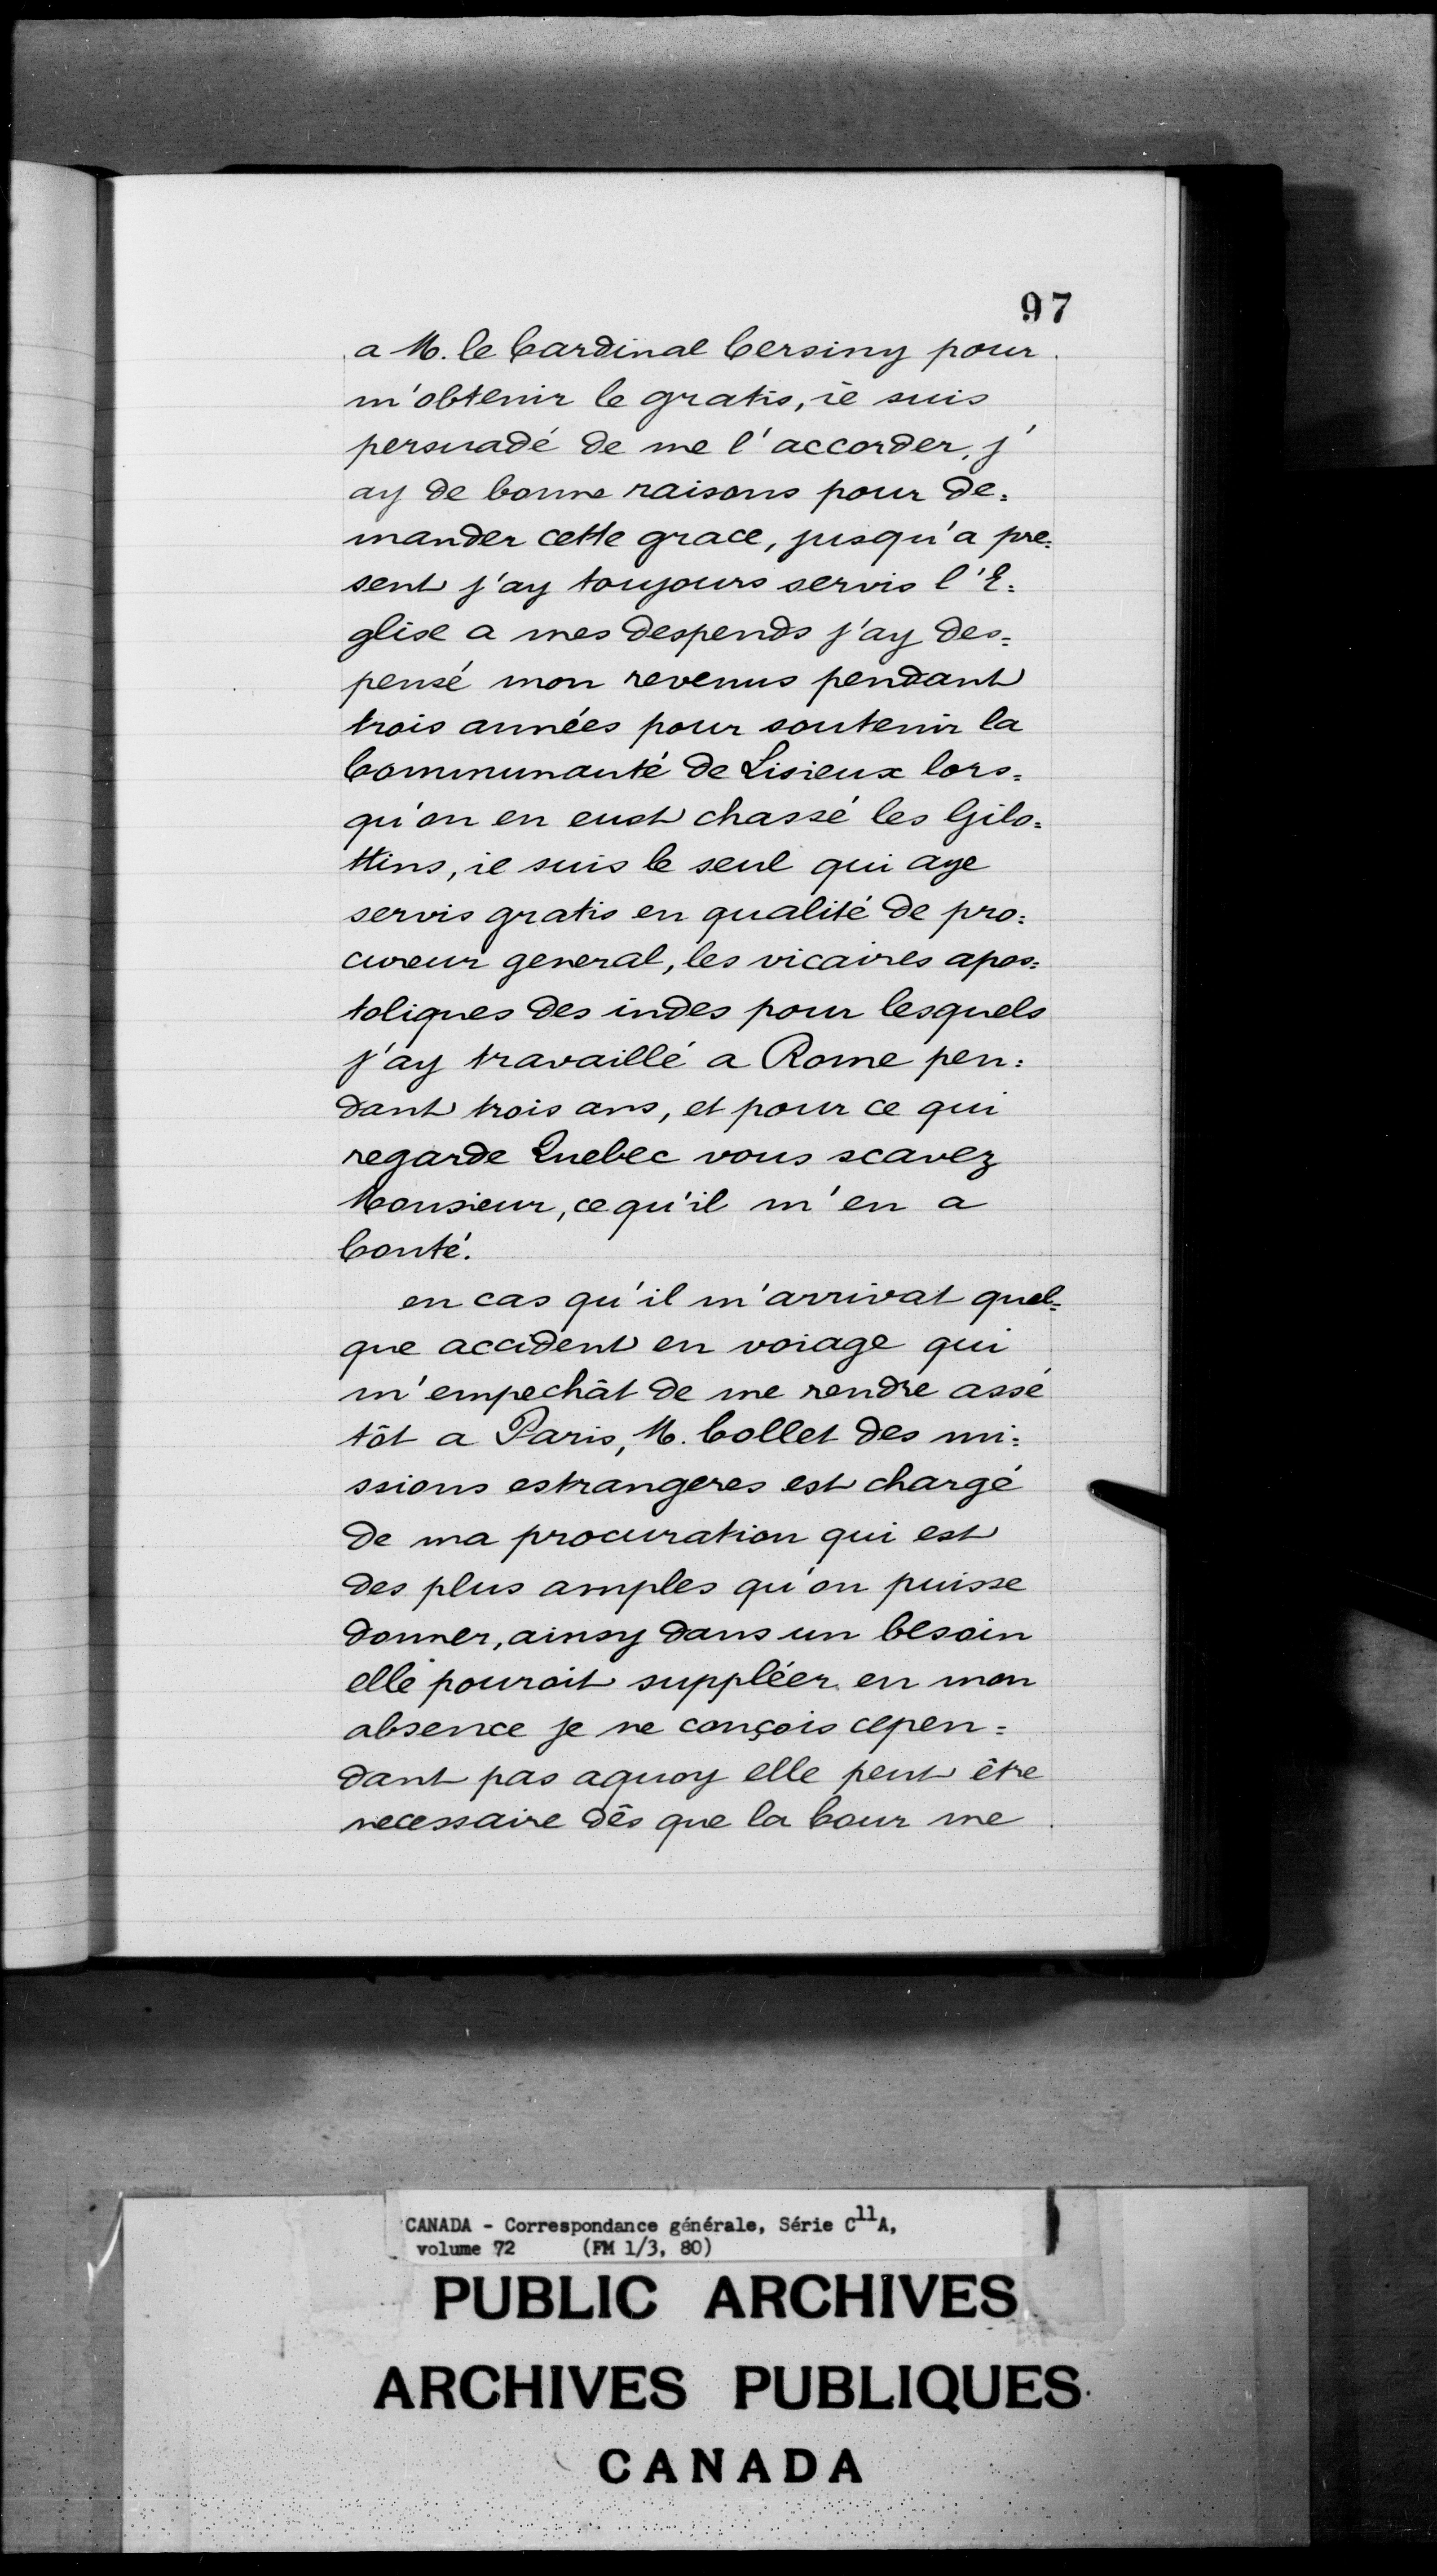 97
a M. le Cardinal Cersiny pour
m'obtenir le gratis, ie suis
persuadé de me l'accorder, j'
ay de bonne raisons pour de=
mander cette grace, jusqu'a pre=
sent j'ay toujours servis l'E=
glise a mes despends j'ay des=
pensé mon revenus pendant
trois années pour soutenir la
Communauté de Lisieux lors=
qu'on en eust chassé les Gilo=
ttins, ie suis le seul qui aye
servis gratis en qualité de pro=
cureur general, les vicaires apos=
toliques des indes pour lesquels
j'ay travaillé a Rome pen=
dant trois ans, et pour ce qui
regarde Quebec vous scavez
Monsieur, ce qu'il m'en a
Couté.
en cas qu'il m'arrivat quel=
que accident en voiage qui
m'empechât de me rendre assé
tôt a Paris, M. Collet des mi=
ssions estrangeres est chargé
de ma procuration qui est
des plus amples qu'on puisse
donner, ainsy dans un besoin
elle pouroit suppléer en mon
absence je ne conçois cepen=
dant pas aquoy elle peut être
necessaire dês que la Cour me
CANADA - Correspondance générale, Série C11A,
volume 72 (FM 1/3, 80)
PUBLIC ARCHIVES
ARCHIVES PUBLIQUES
CANADA